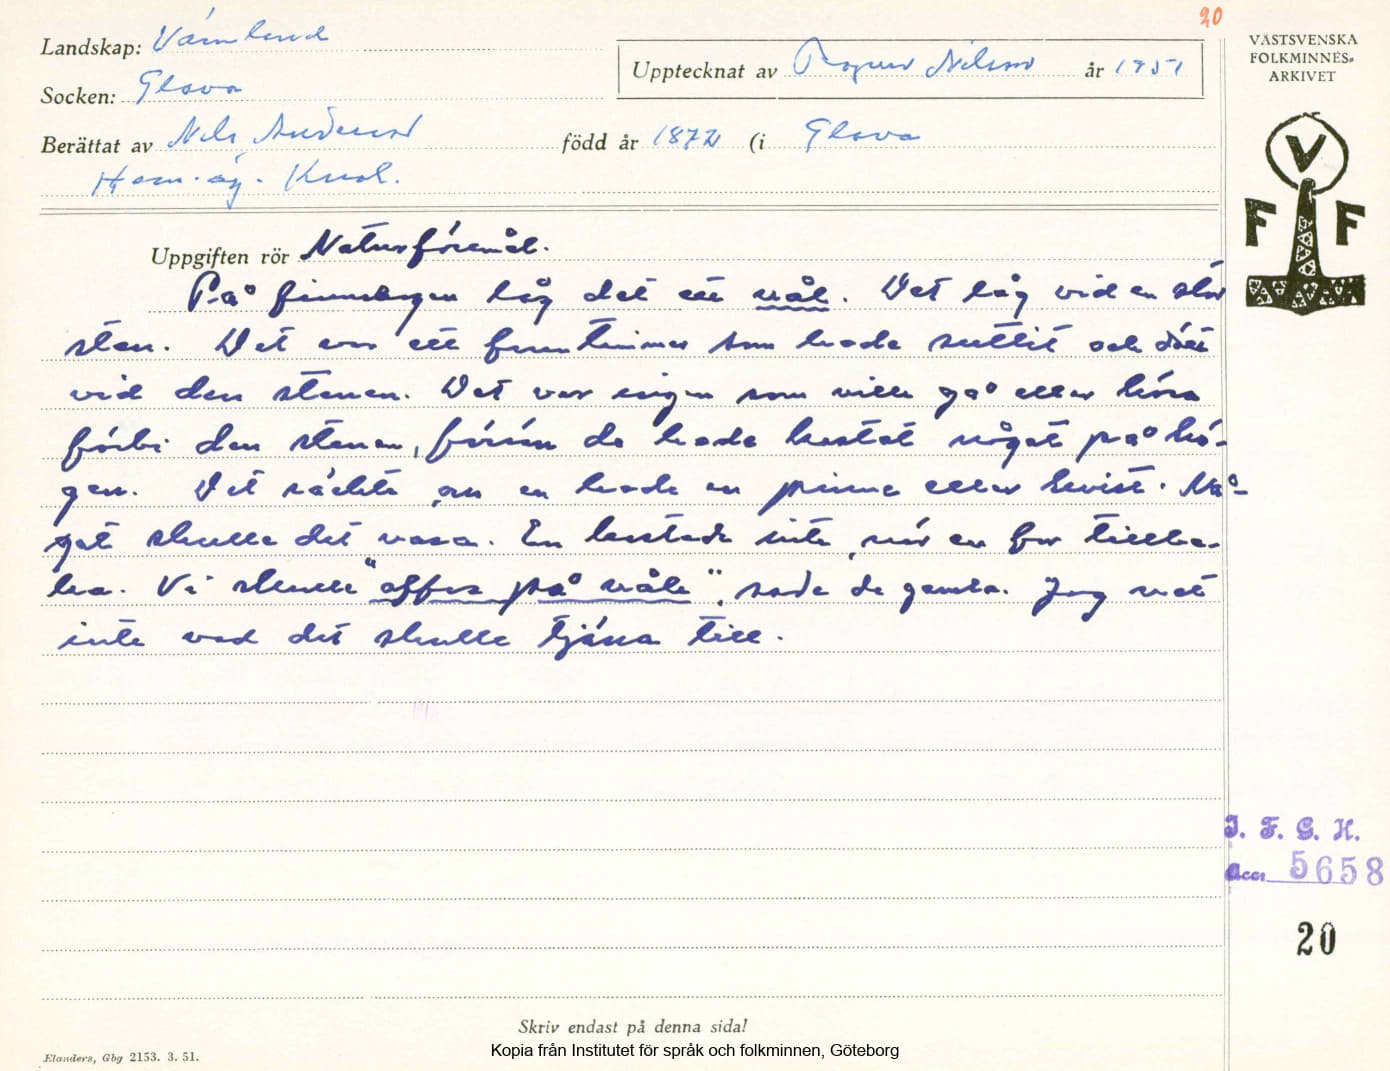 20
Landskap: Värmland
Upptecknat av Ragnar Nilsson år 1951
VÄSTSVENSKA
FOLKMINNES-
ARKIVET
Socken: Glava
Berättat av Nils Andersson född år 1872 (i Glava
Hem. äg.
V
F F
Uppgiften rör Naturföremål.
På finnskogen låg det ett vål. Det låg vid en stor
sten. Det var ett fruntimmer som hade suttit och dött
vid den stenen. Det var ingen som ville gå eller köra
förbi den stenen, förrän de hade kastat något på hö-
gen. Det räckte om en hade en pinne eller kvist. Nå-
got skulle det vara. En kastade inte, när en for tillba-
ka. Vi skulle "offra på våle", sade de gamla. Jag vet
inte vad det skulle tjäna till.
I. F. G. H.
Acc. 5658
20
Skriv endast på denna sida!
Elanders, Gbg 2153. 3. 51.
Kopia från Institutet för språk och folkminnen, Göteborg